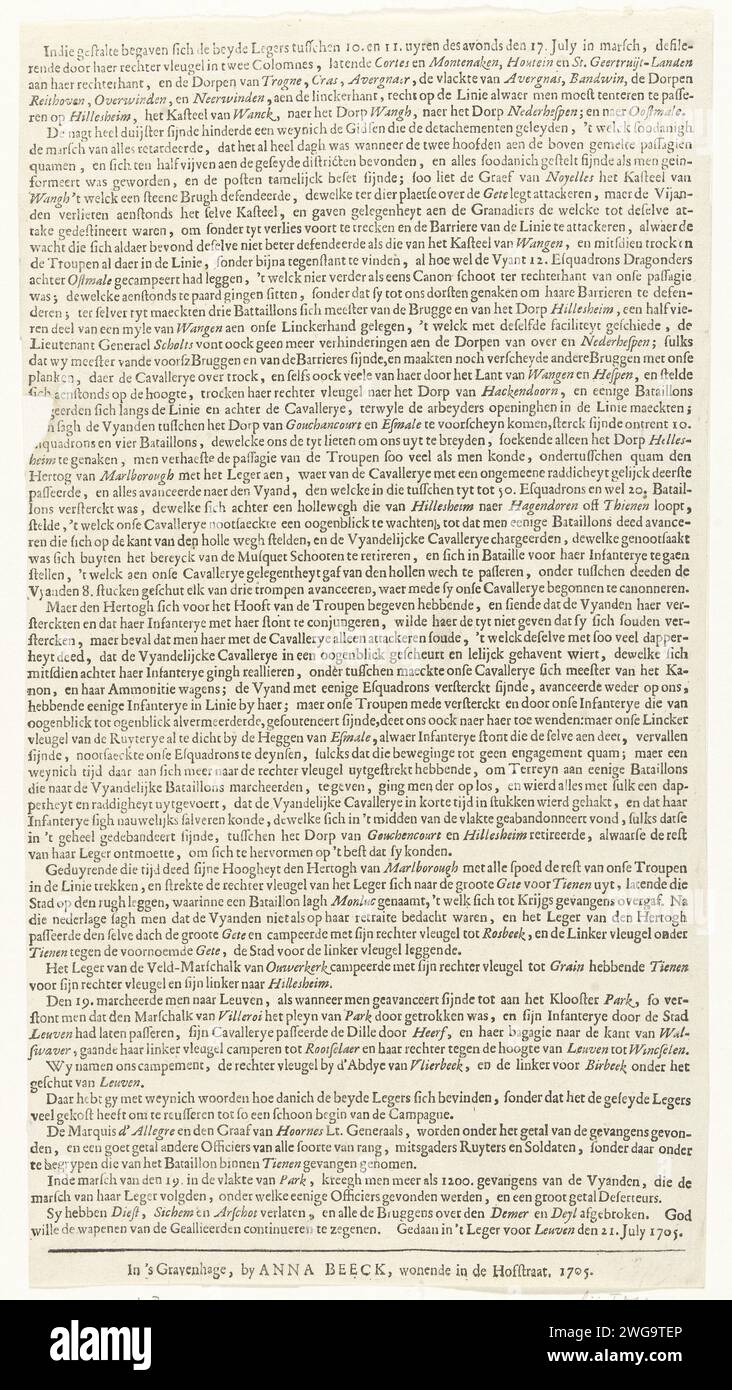 In die gestalte begaven sich de beyde Legers tusschen 10. en 11. uyren des avonds den 17. July in marsch, defile-
rende door haer rechter vleugel in twee Colomnes, latende Cortes en Montenaken, Houtein en St. Geertruijt-Landen
aan haer rechterhant, en de Dorpen van Trogne, Cras, Avergnaer, de vlackte van Avergnas, Bandwin, de Dorpen
Reithoven, Overwinden, en Neerwinden, aen de linckerhant, recht op de Linie alwaer men moest tenteren te passe-
ren op Hillesheim, het Kasteel van Wanck, naer het Dorp Wangh, naer het Dorp Nederhespen; en naer Oostmale.
De nagt heel duijster sijnde hinderde een weynich de Gidsen die de detachementen geleyden, 't welck soodanigh
de marsch van alles retardeerde, dat het al heel dagh was wanneer de twee hoofden aen de boven gemelte passagien
quamen, en sich ten half vijven aen de geseyde districten bevonden, en alles soodanich gestelt sijnde als men gein-
formeert was geworden, en de posten tamelijck beset sijnde; soo liet de Graef van Noyelles het Kasteel van
Wangh 't welck een steene Brugh defendeerde, dewelke ter dier plaetse over de Gete legt attackeren, maer de Vijan-
den verlieten aenstonds het selve Kasteel, en gaven gelegenheyt aen de Granadiers de welcke tot deselve at-
take gedestineert waren, om sonder tyt verlies voort te trecken en de Barriere van de Linie te attackeren, alwaer de
wacht die sich aldaer bevond deselve niet beter defendeerde als die van het Kasteel van Wangen, en mitsdien trocken
de Troupen al daer in de Linie, sonder bijna tegenstant te vinden, al hoe wel de Vyant 12. Esquadrons Dragonders
achter Ostmale gecampeert had leggen, 't welck nier verder als eens Canon schoot ter rechterhant van onse passagie
was; dewelcke aenstonds te paard gingen sitten, sonder dat sy tot ons dorsten genaken om haare Barrieren te defen-
deren; ter selver tyt maeckten drie Battaillons sich meester van de Brugge en van het Dorp Hillesheim, een half vie-
ren deel van een myle van Wangen aen onse Linckerhand gelegen, 't welck met deselfde faciliteyt geschiede, de
Lieutenant Generael Scholts vont oock geen meer verhinderingen aen de Dorpen van over en Nederhespen; sulks
dat wy meester vande voorsz Bruggen en van de Barrieres sijnde, en maakten noch verscheyde andere Bruggen met onse
planken, daer de Cavallerye over trock, en selfs oock veele van haer door het Lant van Wangen en Hespen, en stelde
sich aenstonds op de hoogte, trocken haer rechter vleugel naer het Dorp van Hackendoorn, en eenige Bataillons
geerden sich langs de Linie en achter de Cavallerye, terwyle de arbeyders openinghen in de Linie maeckten;
sagh de Vyanden tusschen het Dorp van Gouchancourt en Esmale te voorschyn komen, sterck sijnde ontrent 10.
squadrons en vier Bataillons, dewelcke ons de tyt lieten om ons uyt te breyden, soekende alleen het Dorp Hilles-
heim te genaken, men verhaeste de passagie van de Troupen soo veel als men konde, ondertusschen quam den
Hertog van Marlborough met het Leger aen, waer van de Cavallerye met een ongemeene raddicheyt gelijck deerste
passeerde, en alles avanceerde naer den Vyand, den welcke in die tusschen tyt tot 50. Esquadrons en wel 20. Batail-
lons versterckt was, dewelcke sich achter een hollewegh die van Hillesheim naer Hagendoren oft Thienen loopt,
stelde, 't welck onse Cavallerye nootsaeckte een oogenblick te wachten, tot dat men eenige Bataillons deed avance-
ren die sich op de kant van den holle wegh stelden, en de Vyandelijcke Cavallerye chargeerden, dewelke genootsaakt
was sich buyten het bereyck van de Musquet Schooten te retireren, en sich in Bataille voor haer Infanterye te gaen
stellen, 't welck aen onse Cavallerye gelegentheyt gaf van den hollen wech te passeren, onder tusschen deeden de
Vyanden 8. stucken geschut elk van drie trompen avanceeren, waer mede sy onse Cavallerye begonnen te canonneren.
Maer den Hertogh sich voor het Hooft van de Troupen begeven hebbende, en siende dat de Vyanden haer ver-
sterckten en dat haer Infanterye met haer stont te conjungeren, wilde haer de tyt niet geven dat sy sich souden ver-
stercken, maer beval dat men haer met de Cavallerye alleen attackeren soude, 't welck deselve met soo veel dapper-
heyt deed, dat de Vyandelijcke Cavallerye in een oogenblick gescheurt en lelijck gehavent wiert, dewelcke sich
mitsdien achter haer Infanterye gingh reallieren, onder tusschen maeckte onse Cavallerye sich meester van het Ka-
non, en haar Ammonitie wagens; de Vyand met eenige Esquadrons versterckt sijnde, avanceerde weder op ons,
hebbende eenige Infanterye in Linie by haer; maer onse Troupen mede versterckt en door onse Infanterye die van
oogenblick tot ogenblick alvermeerderde, gesouteneert sijnde, deet ons oock naer haer toe wenden: maer onse Lincker
vleugel van de Ruyterye al te dicht bij de Heggen van Esmale, alwaer Infanterye stont die de selve aen deet, vervallen
sijnde, nootsaeckte onse Esquadrons te deynsen, sulcks dat die beweginge tot geen engagement quam; maer een
weynich tijd daar aan sich meer naar de rechter vleugel uytgestrekt hebbende, om Terreyn aan eenige Bataillons
die naar de Vyandelijke Bataillons marcheerden, te geven, ging men der op los, en wierd alles met sulk een dap-
perheyt en raddigheyt uytgevoert, dat de Vyandelijcke Cavallerye in korte tijd in stukken wierd gehakt, en dat haar
Infanterye sigh nauwelijks salveren konde, dewelke sich in 't midden van de vlakte geabandonneert vond, sulks datse
in 't geheel gedebandeert sijnde, tusschen het Dorp van Gouchencourt en Hillesheim retireerde, alwaarse de rest
van haar Leger ontmoette, om sich te hervormen op 't best dat sy konden.
Geduyrende die tijd deed sijne Hoogheyt den Hertogh van Marlborough met alle spoed de rest van onse Troupen
in de Linie trekken, en strekte de rechter vleugel van het Leger sich naar de groote Gete voor Tienen uyt, latende die
Stad op den rugh leggen, waarinne een Bataillon lagh Monluc genaamt, 't welk sich tot Krijgs gevangens overgaf. Na
die nederlage sagh men dat de Vyanden niet als op haar retraite bedacht waren, en het Leger van den Hertogh
passeerde den selve dach de groote Gete en campeerde met sijn rechter vleugel tot Rosbeek, en de Linker vleugel onder
Tienen tegen de voornoemde Gete, de Stad voor de linker vleugel leggende.
Het Leger van de Veld-Marschalk van Ouwerkerk campeerde met sijn rechter vleugel tot Grain hebbende Tienen
voor sijn rechter vleugel en sijn linker naar Hillesheim.
Den 19. marcheerde men naar Leuven, als wanneer men geavanceert sijnde tot aan het Klooster Park, so ver-
stont men dat den Marschalk van Villeroi het pleyn van Park door getrokken was, en sijn Infanterye door de Stad
Leuven had laten passeren, sijn Cavallerye passeerde de Dille door Heerf, en haer bagagie naar de kant van Wal-
swaver, gaande haar linker vleugel camperen tot Rootselaer en haar rechter tegen de hoogte van Leuven tot Wincselen.
Wy namen ons campement, de rechter vleugel by d'Abdye van Vlierbeek, en de linker voor Birbeek onder het
geschut van Leuven.
Daar hebt gy met weynich woorden hoe danich de beyde Legers sich bevinden, sonder dat het de geseyde Legers
veel gekost heeft om te reusseren tot so een schoon begin van de Campagne.
De Marquis d'Allegre en den Graaf van Hoornes Lt. Generaals, worden onder het getal van de gevangens gevon-
den, en een goet getal andere Officiers van alle soorte van rang, mitsgaders Ruyters en Soldaten, sonder daar onder
te begrypen die van het Bataillon binnen Tienen gevangen genomen.
Inde marsch van den 19. in de vlakte van Park, kreegh men meer als 1200. gevangens van de Vyanden, die de
marsch van haar Leger volgden, onder welke eenige Officiers gevonden werden, en een groot getal Deserteurs.
Sy hebben Diest, Sichem en Arschot verlaten, en alle de Bruggens over den Demer en Deyl afgebroken. God
wille de wapenen van de Geallieerden continueren te zegenen. Gedaan in 't Leger voor Leuven den 21. July 1705.
In 's Gravenhage, by ANNA BEECK, wonende in de Hofstraat, 1705.
alamy
Image ID: 2WG9TEP
www.alamy.com